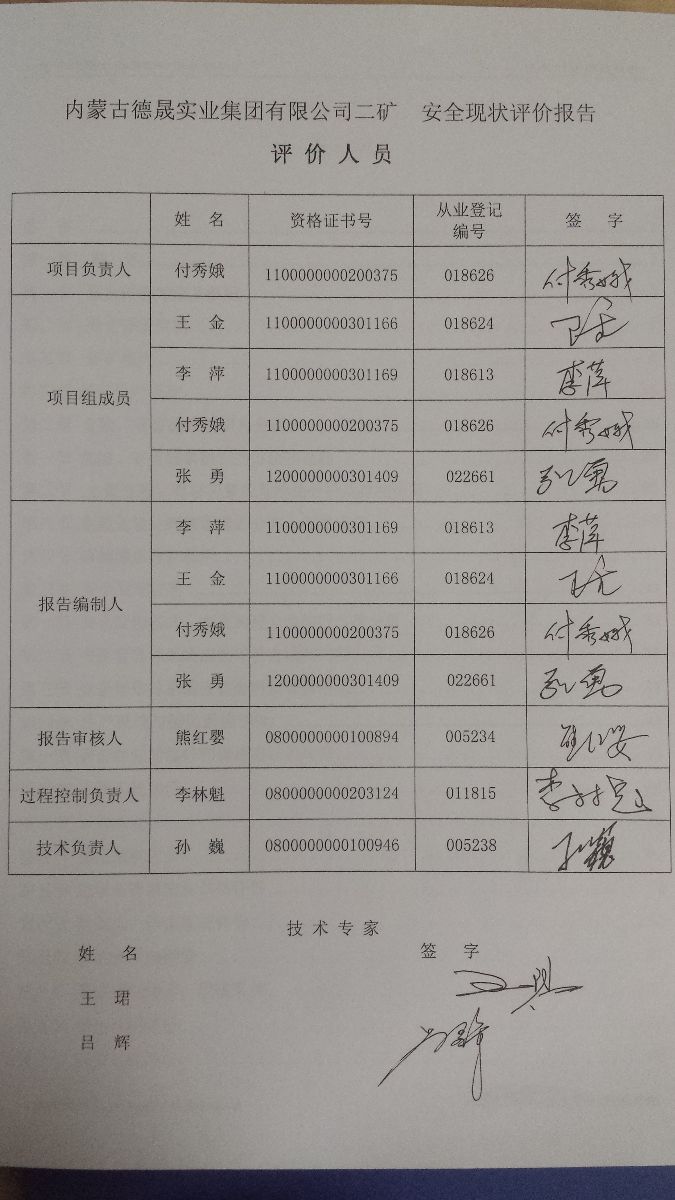 内蒙古德晟实业集团有限公司二矿 安全现状评价报告
评价人员
姓 名 资格证书号 从业登记编号 签 字
项目负责人 付秀娥 1100000000200375 018626 付秀娥
项目组成员 王 金 1100000000301166 018624
李 萍 1100000000301169 018613 李萍
付秀娥 1100000000200375 018626 付秀娥
张 勇 1200000000301409 022661 张勇
报告编制人 李 萍 1100000000301169 018613 李萍
王 金 1100000000301166 018624
付秀娥 1100000000200375 018626 付秀娥
张 勇 1200000000301409 022661 张勇
报告审核人 熊红婴 0800000000100894 005234
过程控制负责人 李林魁 0800000000203124 011815 李林魁
技术负责人 孙 巍 0800000000100946 005238 孙巍
技术专家
姓 名 签 字
王 珺
吕 辉